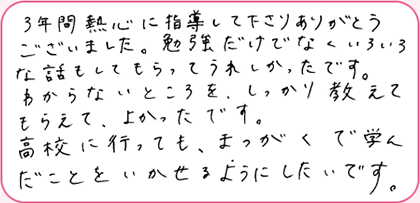 3年間熱心に指導して下さりありがとう
ございました。勉強だけでなくいろいろ
な話もしてもらってうれしかったです。
わからないところを、しっかり教えて
もらえて、よかったです。
高校に行っても、まつがくで学ん
だことをいかせるようにしたいです。